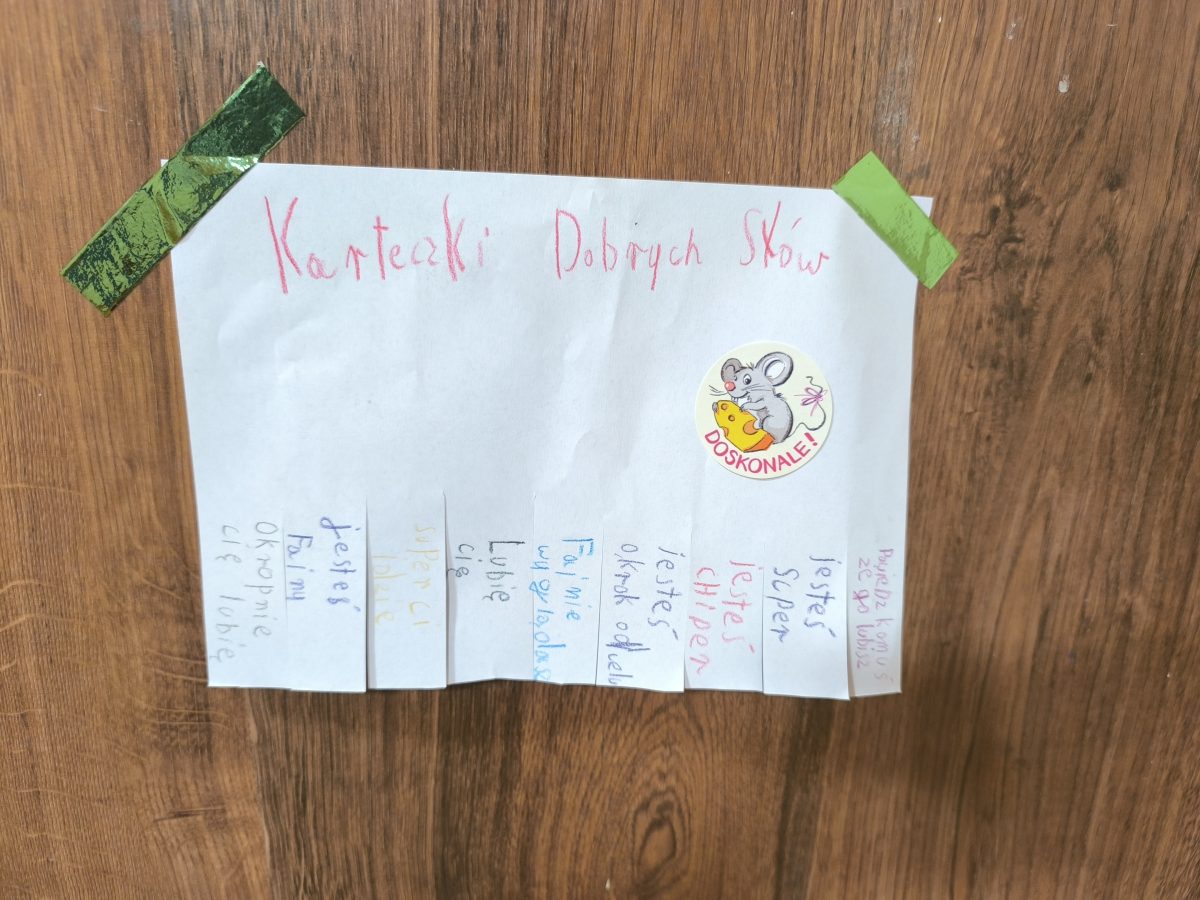 Karteczki Dobrych Słów
DOSKONALE!
okropnie
cię lubię
jesteś
Fajny
super ci
idzie
Lubię
cię
Fajnie
wyglądasz
jesteś
okrok odcelu
jesteś
CHiper
jesteś
super
Powiedz komuś
że go lubisz